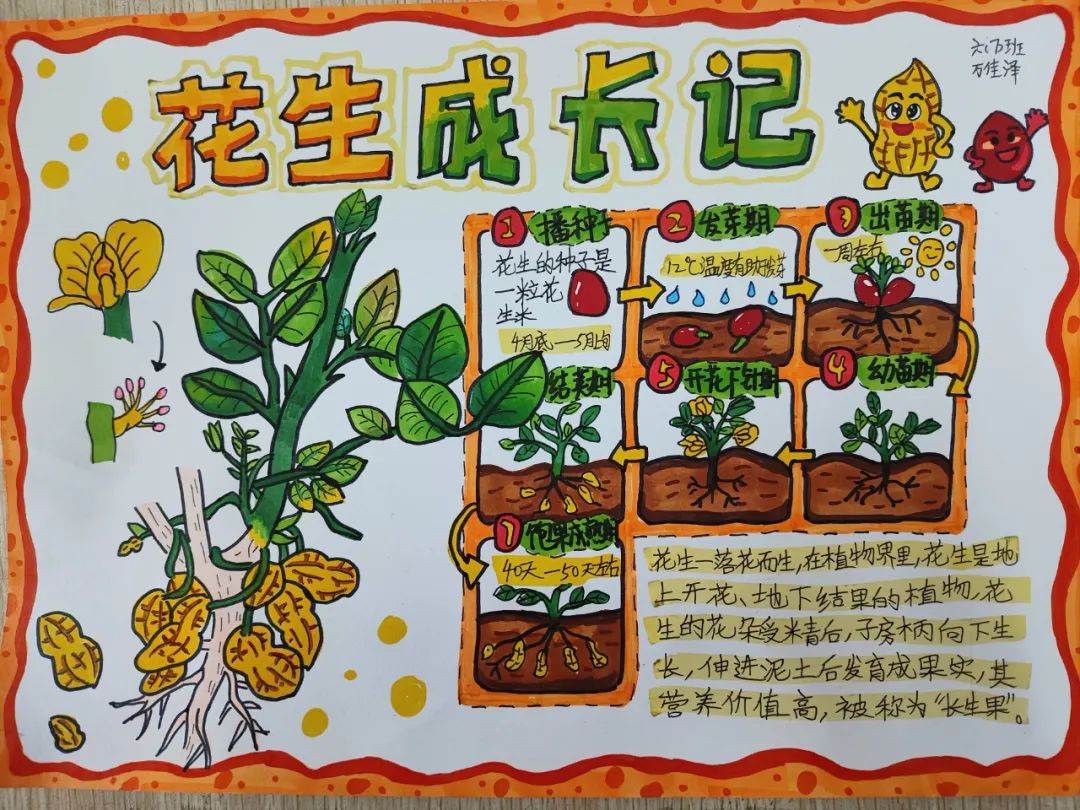 花生成长记
六(7)班
万佳泽
1 播种
花生的种子是
一粒花
生米
4月底——5月上旬
2 发芽期
12℃温度有助发芽
3 出苗期
一周左右
4 幼苗期
5 开花下针期
结荚期
7 饱果成熟期
40天—50天左右
花生—落花而生,在植物界里,花生是地
上开花、地下结果的植物,花
生的花朵受精后,子房柄向下生
长,伸进泥土后发育成果实,其
营养价值高,被称为“长生果”。